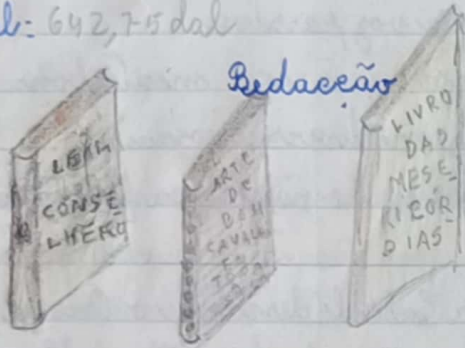 l= 642,75 dal
Redacção
LEAL
CONSE
LHEIRO
ARTE
DE
BEM
CAVALG
LIVRO
DAS
MESE
RICÓR
DIAS